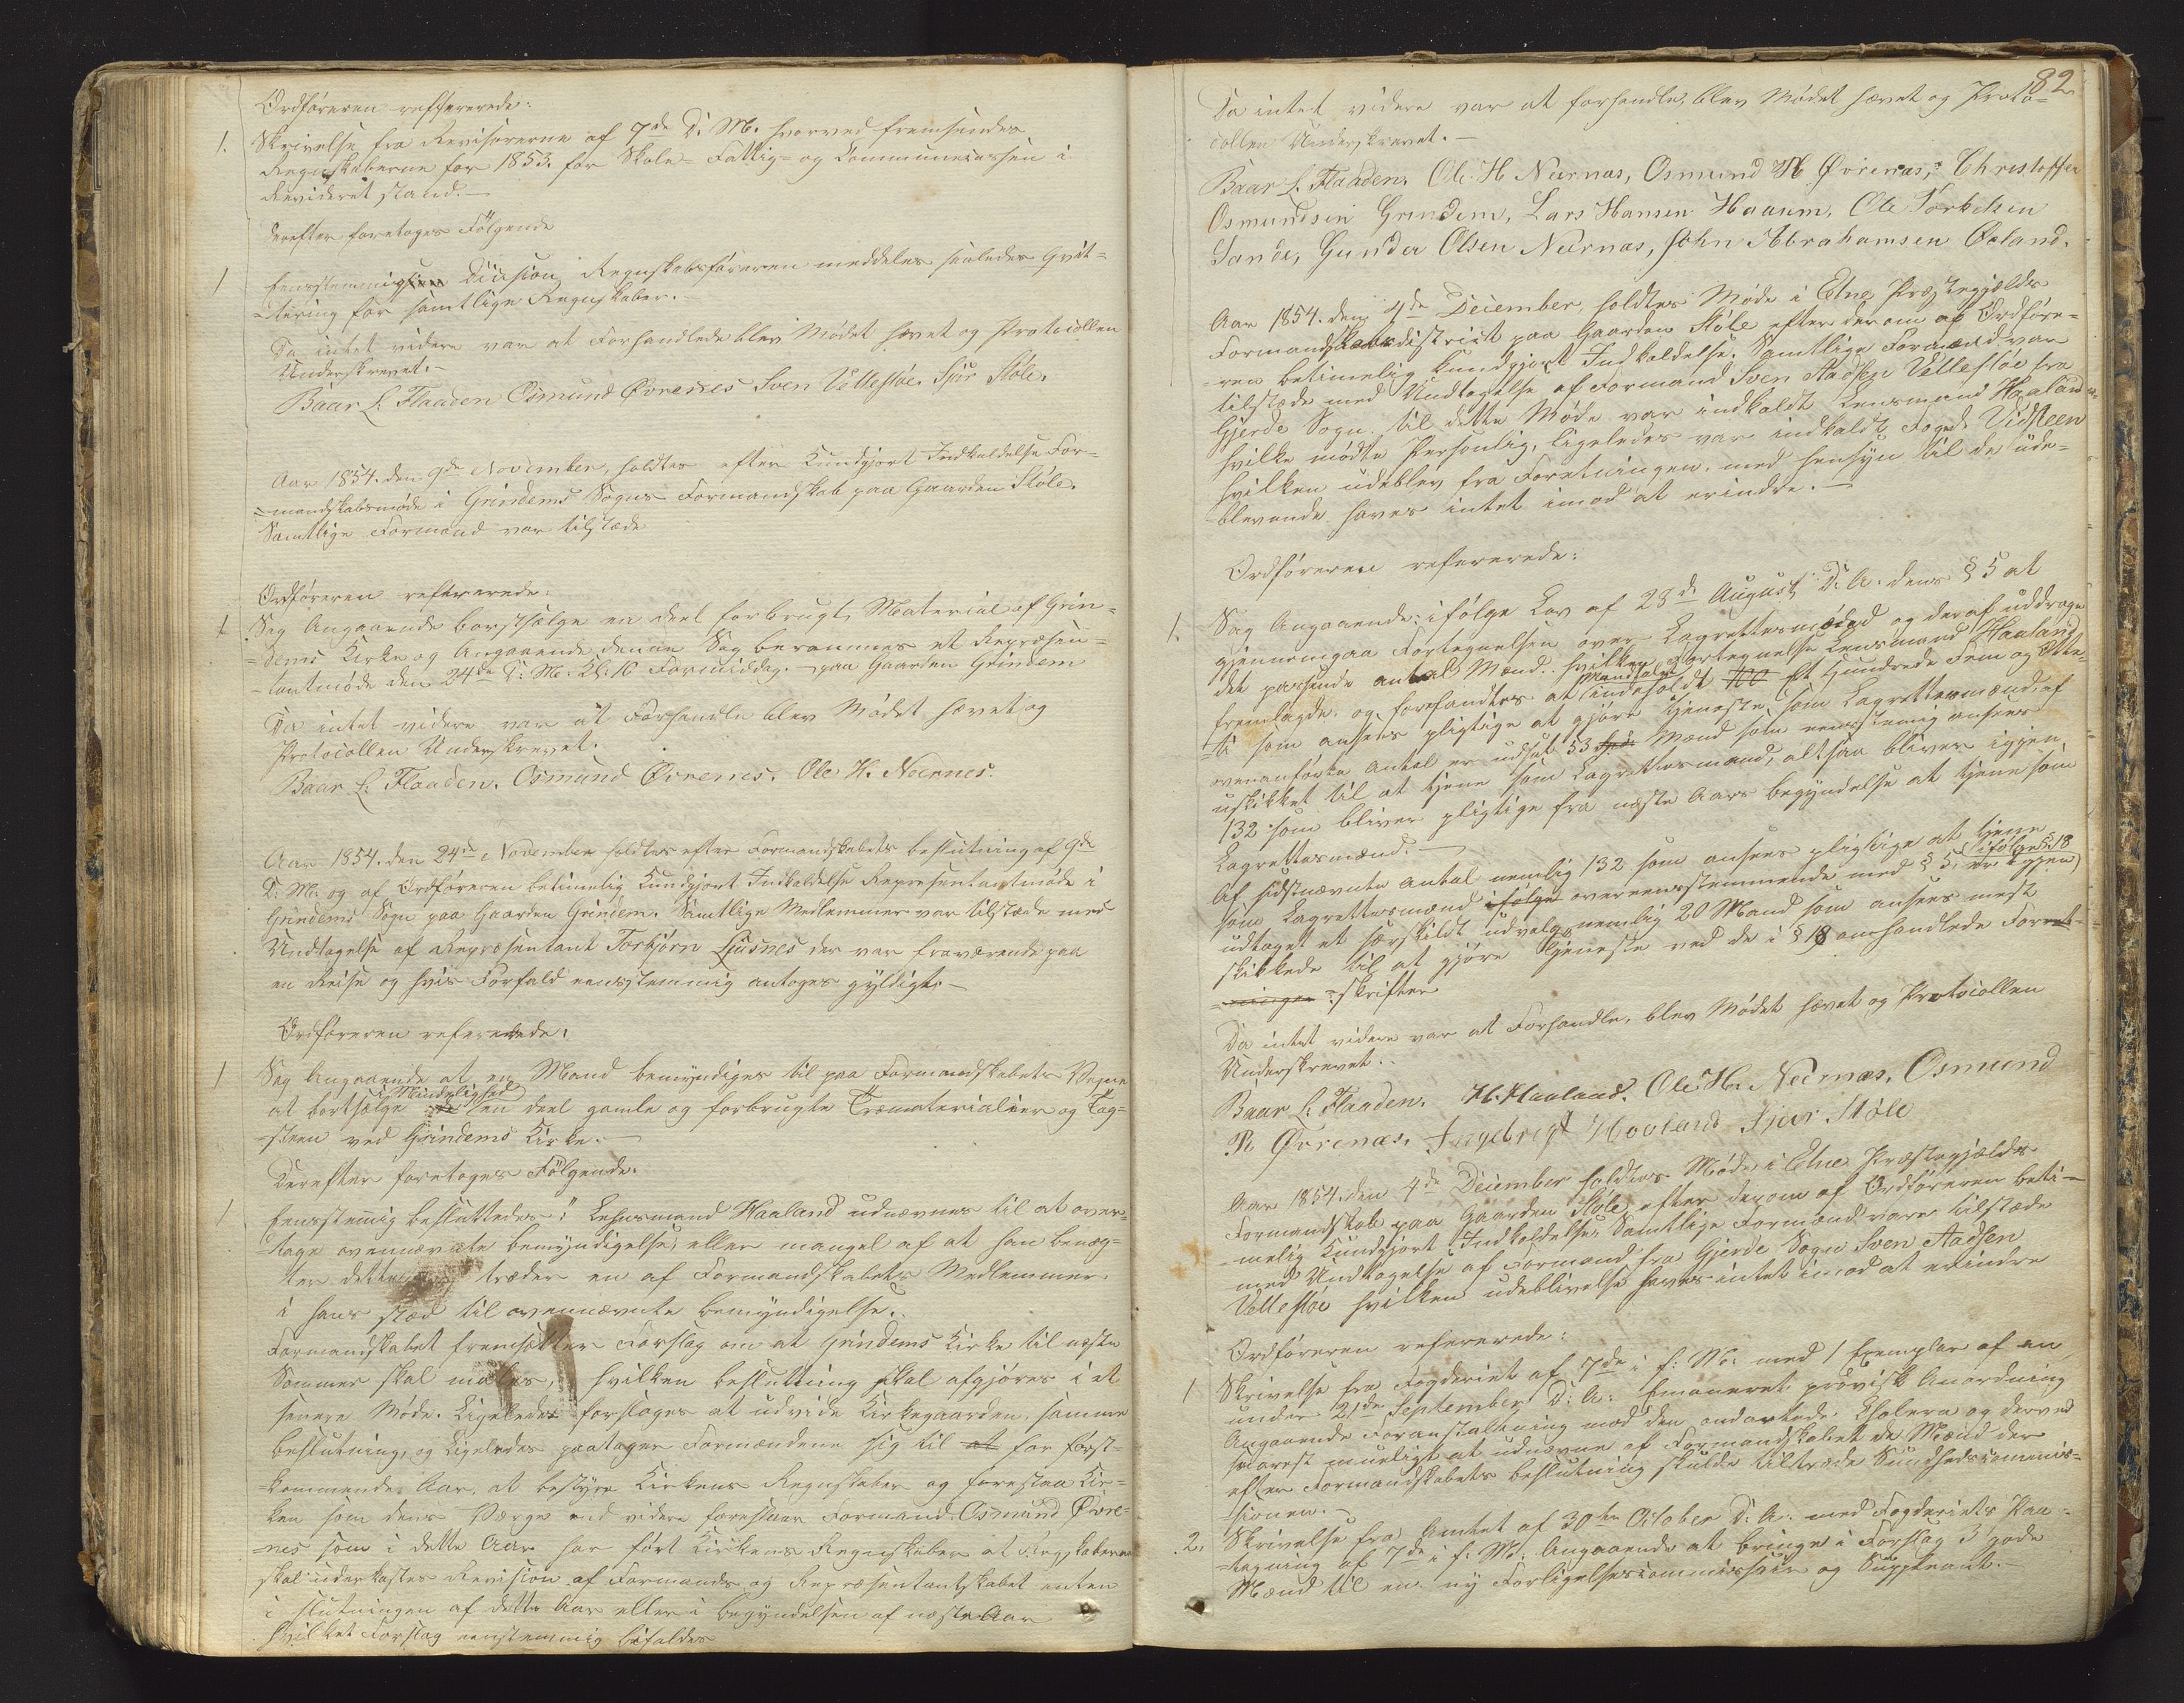 Ordføreren refererede:
1. Skrivelse fra Revisorerne af 7de D. M. hvorved fremsendes
Regnskaberne for 1853. for Skole- Fattig- og Communecassen i
Revideret stand.-
Derefter foretoges Følgende
1 Eensstemmig Decision Regnskabsføreren meddeles saaledes Qvit=
=tering for samtlige Regnskaber.-
Da intet videre var at Forhandlede blev Mødet hævet og Protocollen
Underskrevet.-
Baar L. Flaaden Osmund Øvrenes Sven Vellesløe. Sjur Støle.
Aar 1854. den 9de November, holdtes efter Kundgjort Indkaldelse For=
=mandskabsmøde i Grindems Sogns Formandskab paa Gaarden Støle.
Samtlige Formænd var tilstæde
Ordføreren refererede:
1 Sag Angaaende bortsælge en deel forbrugt Material af Grin=
=dems Kirke og Angaaende denne Sag berammes et Repræsen=
=tantmøde den 24de D. M. Kl. 10 Formiddag.- paa Gaarden Grindem
Da intet videre var at Forhandle blev Mødet hævet og
Protocollen Underskrevet.
Baar L. Flaaden. Osmund Øvrenes. Ole H. Nernes.
Aar 1854. den 24de November holdtes efter Formandskabets beslutning af 9de
D. M. og af Ordføreren betimelig Kundgjort Indkaldelse Representantmøde i
Grindems Sogn paa Gaarden Grindem. Samtlige Medlemmer var tilstæde med
Undtagelse af Repræsentant Torbjørn Ljusnes der var fraværende paa
en Reise og hvis Forfald eensstemmig antoges gyldigt.-
Ordføreren refererede.
1 Sag Angaaende at en Mand bemyndiges til paa Formandskabets Vegne
i Mindelighed
at bortsælge en deel gamle og forbrugte Træmaterialier og Tag=
=steen ved Grindems Kirke.-
Derefter foretoges Følgende.
1 Eensstemig besluttedes: " Lehnsmand Haaland udnævnes til at over=
=tage ovennævnte bemyndigelse, eller mangel af at han benæg=
ter dette træder en af Formandskabets Medlemmer
i hans sted til ovennævnte bemyndigelse.
Formandskabet fremsætter Forslag om at Grindems Kirke til næste
Sommer skal males, hvilken beslutning skal afgjøres i et
senere Møde. Ligeledes forslages at udvide Kirkegaarden, samme
beslutning, og Ligeledes paatager Formændene sig til at for først=
=kommende Aar, at bestyre Kirkens Regnskaber og forestaa Kir=
ken som dens Værge end videre foreslaar Formand Osmund Øvre=
=nes som i dette Aar har ført Kirkens Regnskaber at Regskaberne
skal underkastes Revision af Formands og Repræsentantskabet enten
i slutningen af dette Aar eller i begyndelsen af næste Aar
hvilket Forslag eenstemmig bifaldes
82
Da intet videre var at forhandle, blev Mødet hævet og Proto=
collen Underskrevet.-
Baar L. Flaaden. Ole H Nernæs, Osmund H Øvrenæs, Christoffer
Osmundsen Grindem, Lars Hansen Haaum, Ole Torkelsen
Sande, Gunder Olsen Nernæs, John Abrahamsen Øeland.
Aar 1854. den 4de December, holdtes Møde i Etne Præstegjelds
Formandskabsdistrict paa Gaarden Støle efter derom af Ordføre=
=ren betimelig kundgjort Indkaldelse. Samtlige Formænd var
tilstæde med Undtagelse af Formand Sven Aadsen Vellesløe fra
Gjerde Sogn. Til dette Møde var indkaldt Lensmand Haaland
hvilke mødte Personlig, ligeledes var indkaldt Foged Vidsteen
hvilken udeblev fra Foretningen, med hensyn til de ude=
blevende haves intet imod at erindre.-
Ordføreren refererede:
1. Sag Angaaende: ifølge Lov af 23de August D. A. dens § 5 at
gjennemgaa Fortegnelsen over Lagrettesmænd og deraf uddrage
det passende antal Mænd. hvilken Fortegnelse Lensmand Haaland
Mandtallet
fremlagde. og forefandtes at indeholdt Et Hundrede Fem og Otte=
ti som ansees pligtige at gjøre Tjeneste, som Lagrettesmænd, af
ovenanførte antal er udsat 53 Mænd som eensstemig ansees
uskikket til at tjene som Lagrettesmænd, altsaa bliver igjen
132 som bliver pligtige fra næste Aars begyndelse at tjene som
Lagrettesmænd.-
Af sidstnævnte antal nemlig 132 som ansees pligtige at tjene
ifølge § 18
som Lagrettesmænd ifølge overeensstemmende med § 5. er igjen
udtaget et særskildt udvalg nemlig 20 Mand som ansees mest
skikkede til at gjøre tjeneste ved de i § 18 omhandlede Forret=
skrifter
Da intet videre var at Forhandle, blev Mødet hævet og Protocollen
Underskrevet.
Baar L. Flaaden. H. Haaland. Ole H. Nernæs. Osmund
R Øvrenæs. Ingebrigt Hovland Sjur Støle
Aar 1854. den 4de December holdtes Møde i Etne Præstegjelds
Formandskab paa Gaarden Støle efter derom af Ordføreren beti=
=melig Kundgjort Indkaldelse, Samtlige Formænd vare tilstæde
med Undtagelse af Formand fra Gjerde Sogn Sven Aadsen
Vellesløe hvilken udeblivelse haves intet imod at erindre
Ordføreren refererede:
1 Skrivelse fra Fogderiet af 7de i f. M. med 1 Exemplar af en
under 21de September D. A. Emaneret provisk Anordning
Angaaende Foranstaltning mod den ondartede Cholera og derved
snarest mueligt at udnævne af Formandskabet de Mænd der
efter Formandskabets beslutning skulde tiltræde Sundhedscommis=
=sionen.-
2. Skrivelse fra Amtet af 30te October D. A. med Fogderiets Paa=
=tegning af 7de i f. M. Angaaende at bringe i Forslag 3 gode
Mænd til en ny Forligelsescommissair og Suppleant.-